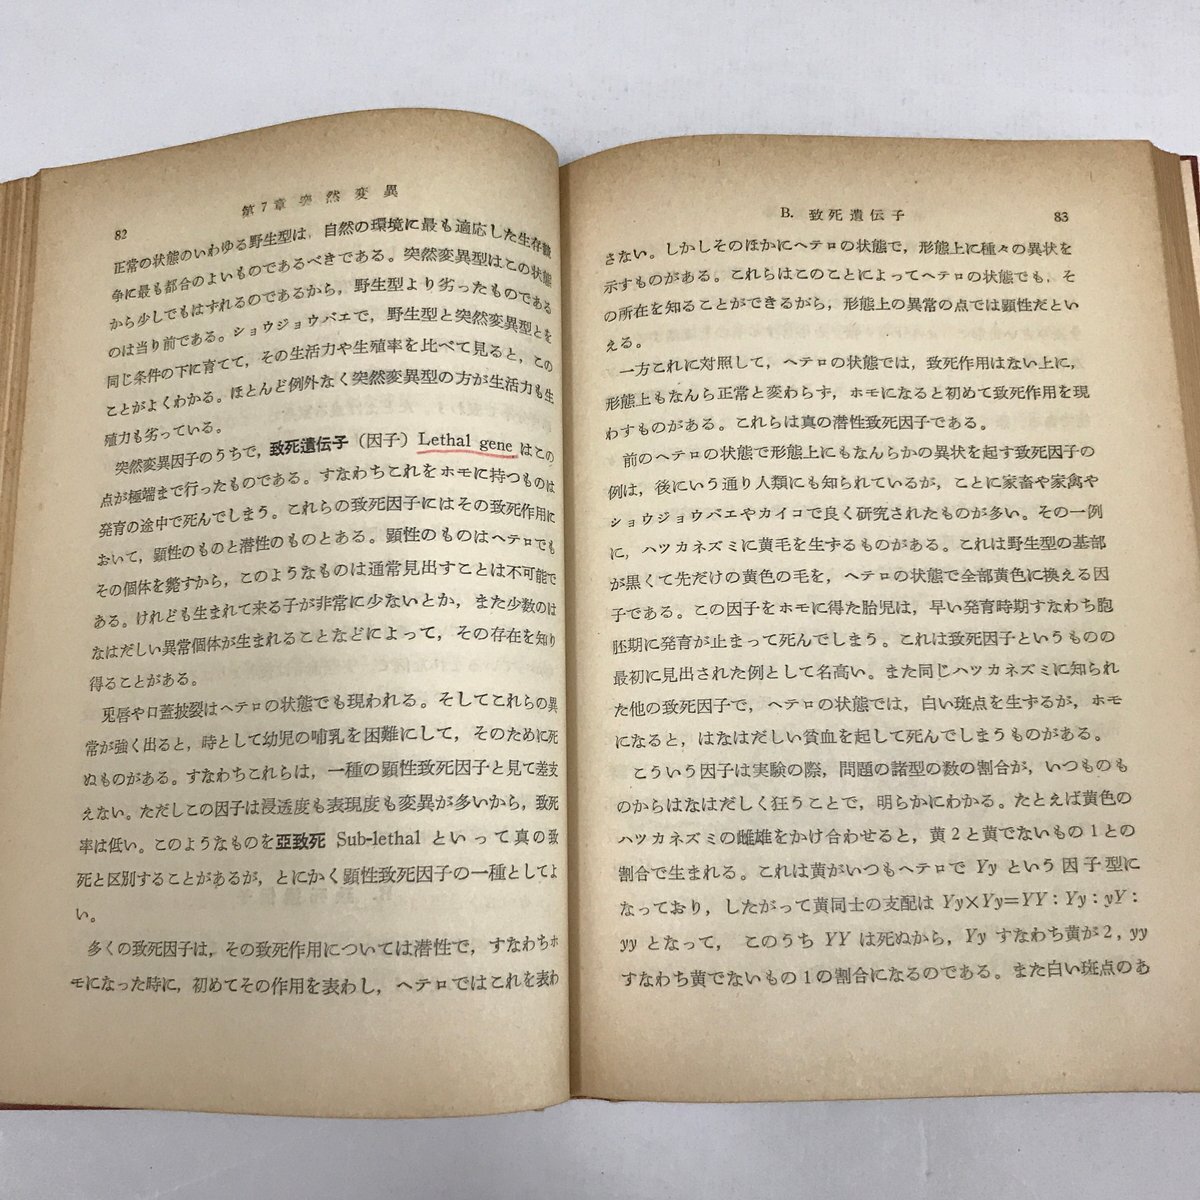 82
第7章 突然変異
正常の状態のいわゆる野生型は，自然の環境に最も適応した生存競
争に最も都合のよいものであるべきである。突然変異型はこの状態
から少しでもはずれるのであるから，野生型より劣ったものである
のは当り前である。ショウジョウバエで，野生型と突然変異型とを
同じ条件の下に育てて，その生活力や生殖率を比べて見ると，この
ことがよくわかる。ほとんど例外なく突然変異型の方が生活力も生
殖力も劣っている。
突然変異因子のうちで，致死遺伝子（因子）Lethal gene はこの
点が極端まで行ったものである。すなわちこれをホモに持つものは
発育の途中で死んでしまう。これらの致死因子にはその致死作用に
おいて，顕性のものと潜性のものとある。顕性のものはヘテロでも
その個体を斃すから，このようなものは通常見出すことは不可能で
ある。けれども生まれて来る子が非常に少ないとか，また少数のは
なはだしい異常個体が生まれることなどによって，その存在を知り
得ることがある。
兎唇や口蓋披裂はヘテロの状態でも現われる。そしてこれらの異
常が強く出ると，時として幼児の哺乳を困難にして，そのために死
ぬものがある。すなわちこれらは，一種の顕性致死因子と見て差支
えない。ただしこの因子は浸透度も表現度も変異が多いから，致死
率は低い。このようなものを亞致死 Sub-lethal といって真の致
死と区別することがあるが，とにかく顕性致死因子の一種としてよ
い。
多くの致死因子は，その致死作用については潜性で，すなわちホ
モになった時に，初めてその作用を表わし，ヘテロではこれを表わ
B. 致死遺伝子
83
さない。しかしそのほかにヘテロの状態で，形態上に種々の異状を
示すものがある。これらはこのことによってヘテロの状態でも，そ
の所在を知ることができるがら，形態上の異常の点では顕性だとい
える。
一方これに対照して，ヘテロの状態では，致死作用はない上に，
形態上もなんら正常と変わらず，ホモになると初めて致死作用を現
わすものがある。これらは真の潜性致死因子である。
前のヘテロの状態で形態上にもなんらかの異状を起す致死因子の
例は，後にいう通り人類にも知られているが，ことに家畜や家禽や
ショウジョウバエやカイコで良く研究されたものが多い。その一例
に，ハツカネズミに黄毛を生ずるものがある。これは野生型の基部
が黒くて先だけの黄色の毛を，ヘテロの状態で全部黄色に換える因
子である。この因子をホモに得た胎児は，早い発育時期すなわち胞
胚期に発育が止まって死んでしまう。これは致死因子というものの
最初に見出された例として名高い。また同じハツカネズミに知られ
た他の致死因子で，ヘテロの状態では，白い斑点を生ずるが，ホモ
になると，はなはだしい貧血を起して死んでしまうものがある。
こういう因子は実験の際，問題の諸型の数の割合が，いつものも
のからはなはだしく狂うことで，明らかにわかる。たとえば黄色の
ハツカネズミの雌雄をかけ合わせると，黄2と黄でないもの1との
割合で生まれる。これは黄がいつもヘテロで Yy という因子型に
なっており，したがって黄同士の支配は Yy×Yy=YY：Yy：yY：
yy となって， このうち YY は死ぬから，Yy すなわち黄が2，yy
すなわち黄でないもの1の割合になるのである。また白い斑点のあ